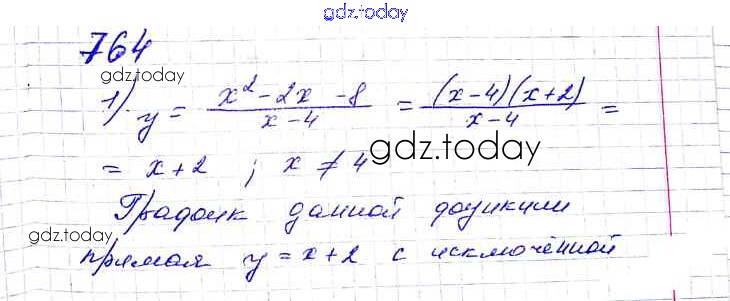 gdz.today
764
gdz.today
1) y = (x² - 2x - 8)/(x - 4) = ((x - 4)(x + 2))/(x - 4) =
= x + 2 ; x ≠ 4
gdz.today
График данной функции
gdz.today
прямая y = x + 2 с исключённой